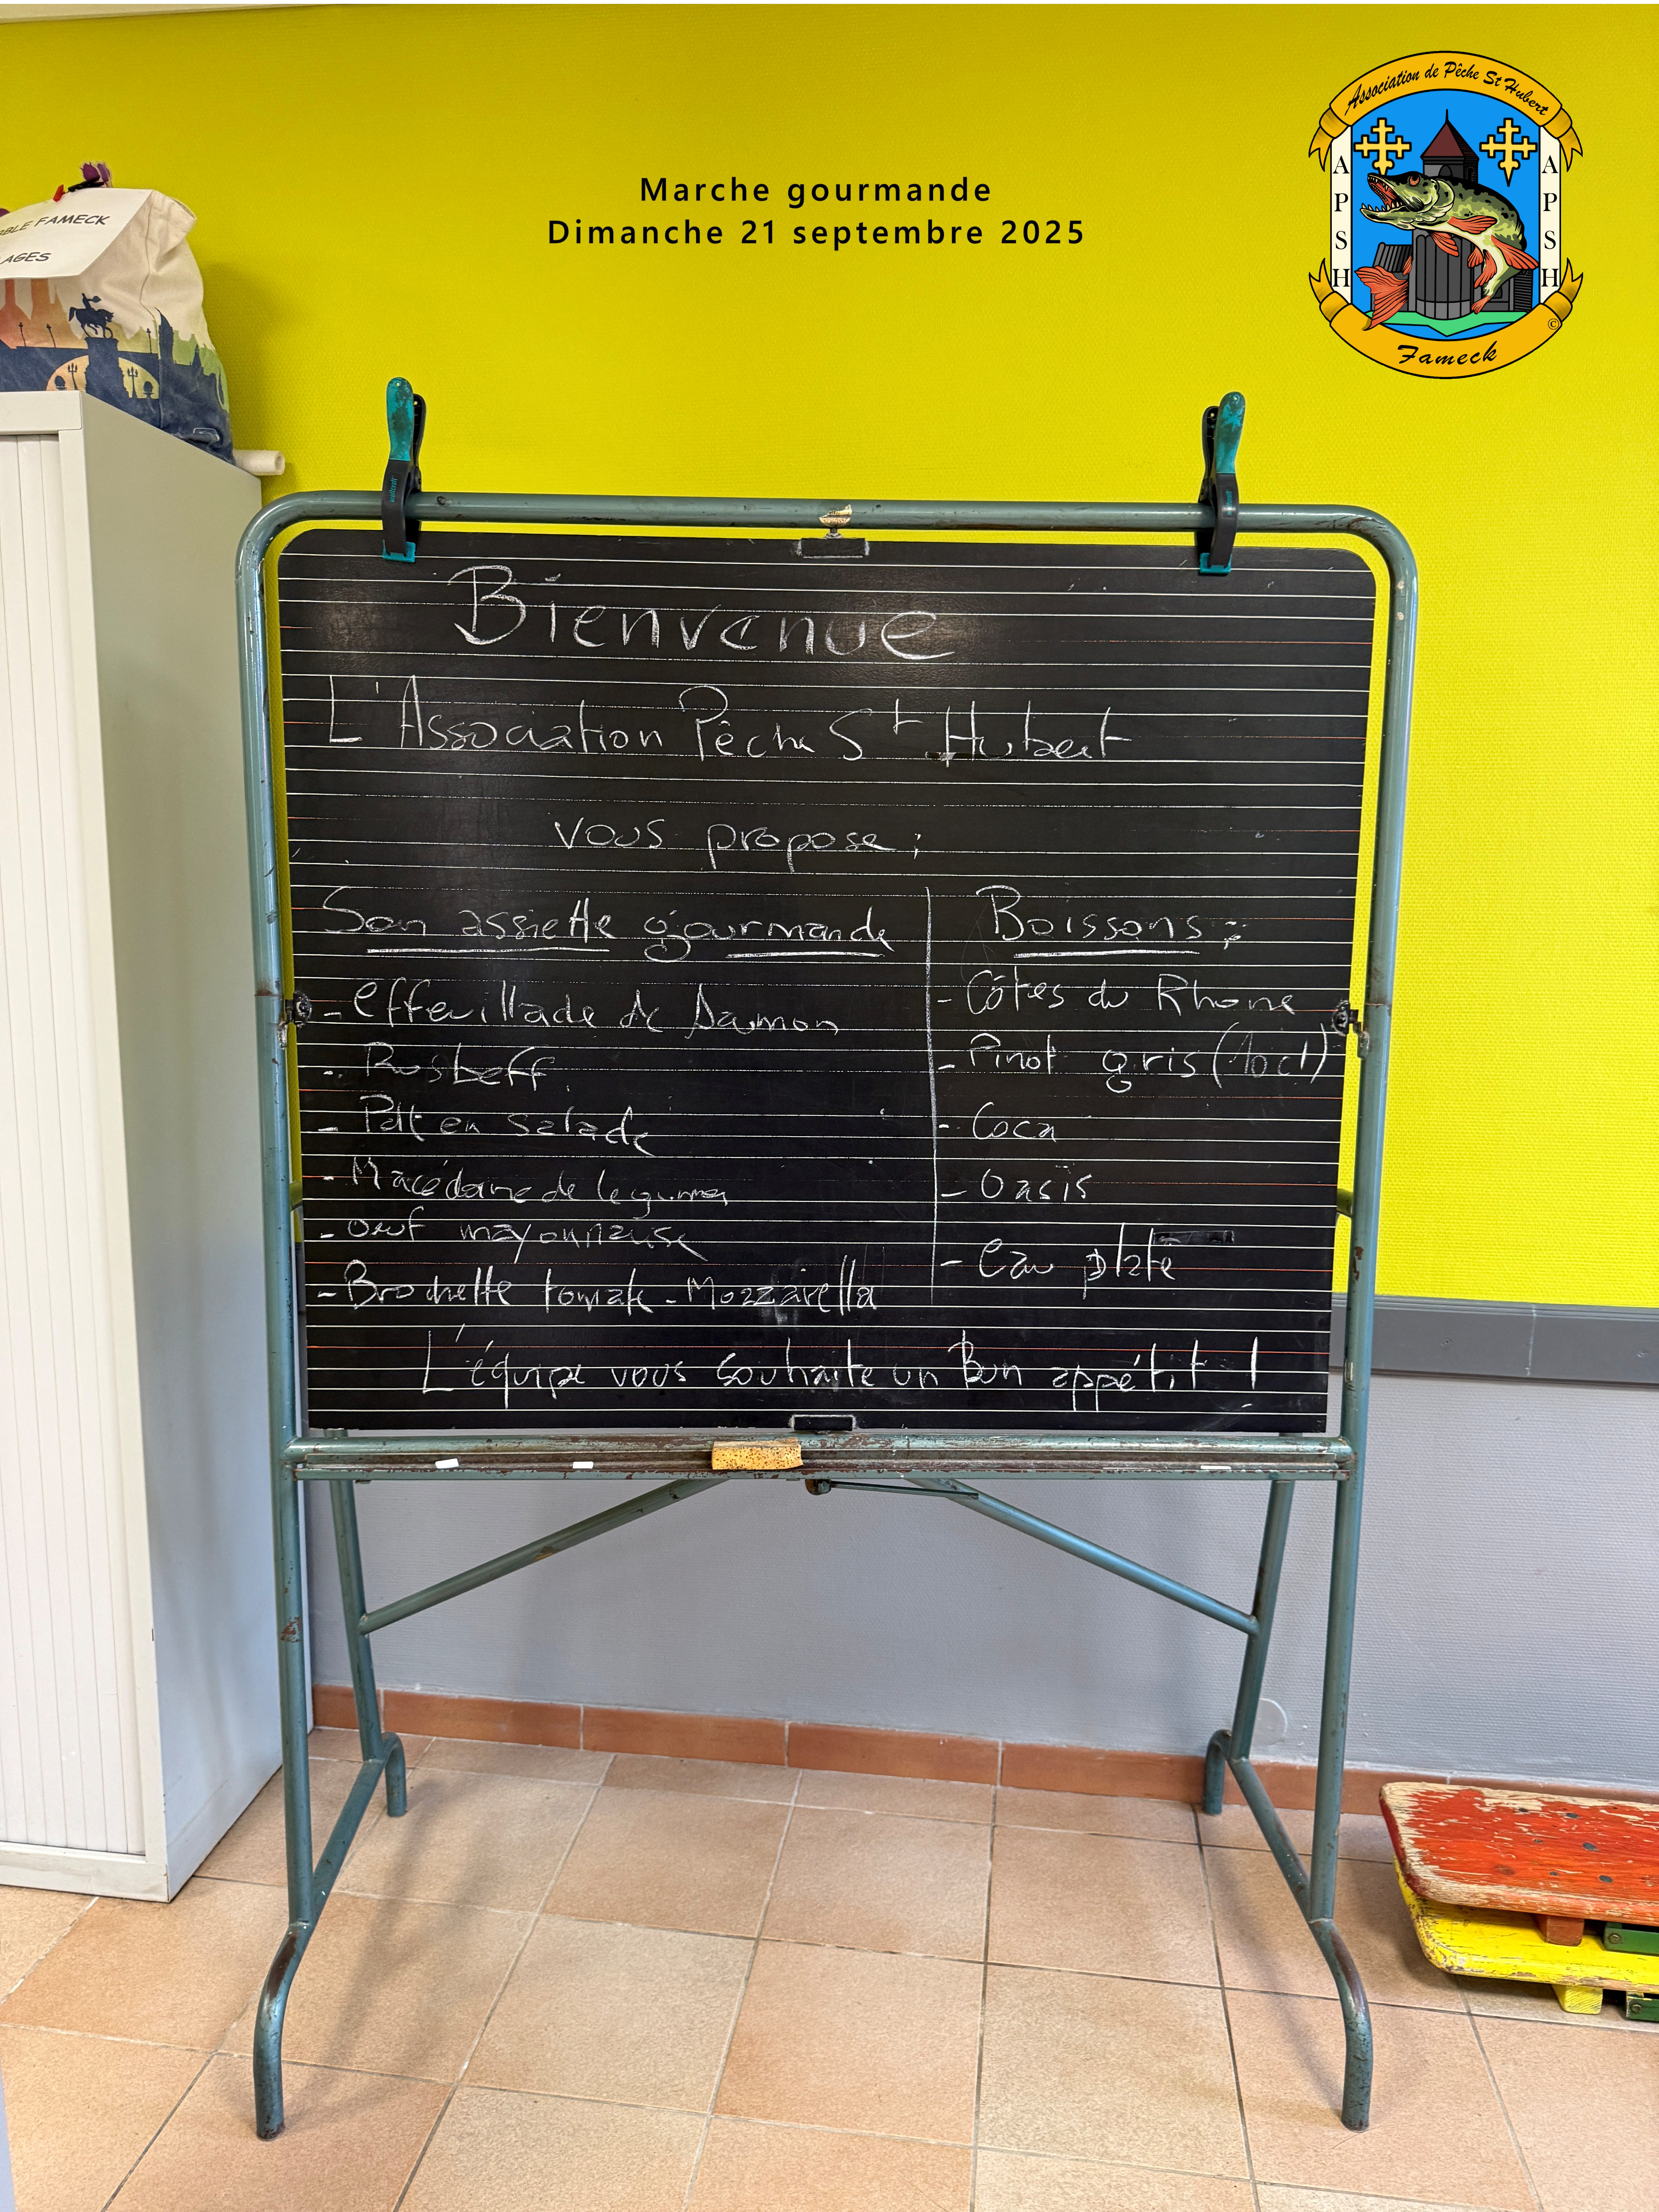 Marche gourmande
Dimanche 21 septembre 2025
Association de Pêche St Hubert
APSH
APSH
©
Fameck
FAMECK
AGES
Bienvenue
L'Association Pêche St Hubert
vous propose :
Son assiette gourmande
- effeuillade de
- Rosbeff
- Pdt en salade
- Macédoine de legumes
- oeuf mayonnaise
- Brochette tomate - Mozzarella
Boissons :
- Côtes du Rhone
- Pinot gris (10cl)
- Coca
- Oasis
- Eau plate
L'équipe vous souhaite un Bon appétit !